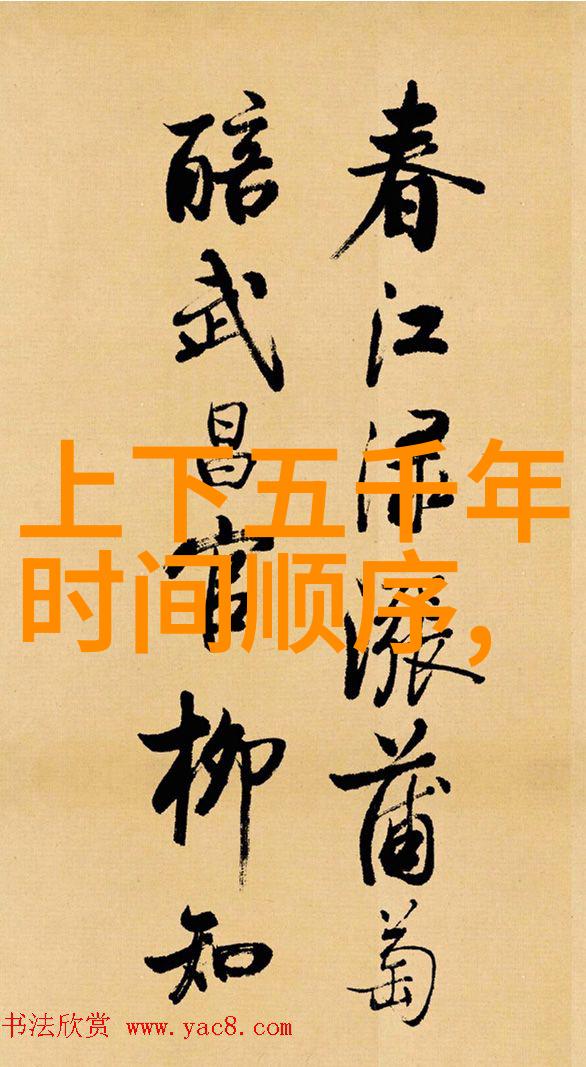 春江渌漲蒲萄
醅武昌官柳知
上下五千年
时间顺序,
书法欣赏 www.yac8.com